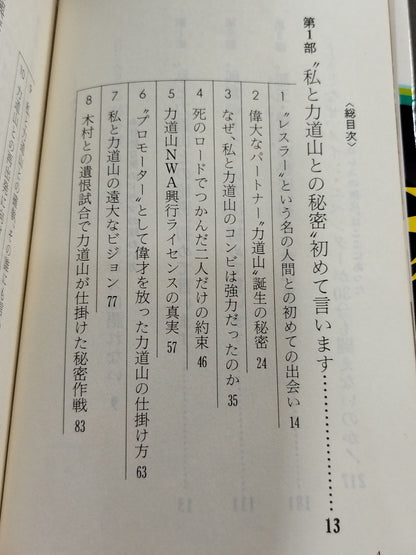 〈総目次〉
第1部 〝私と力道山との秘密〟初めて言います…………………13
1 〝レスラー〟という名の人間との初めての出会い 14
2 偉大なパートナー〝力道山〟誕生の秘密 24
3 なぜ、私と力道山のコンビは強力だったのか 35
4 死のロードでつかんだ二人だけの約束 46
5 力道山NWA興行ライセンスの真実 57
6 〝プロモーター〟として偉才を放った力道山の仕掛け方 63
7 私と力道山の遠大なビジョン 77
8 木村との遺恨試合で力道山が仕掛けた秘密作戦 83